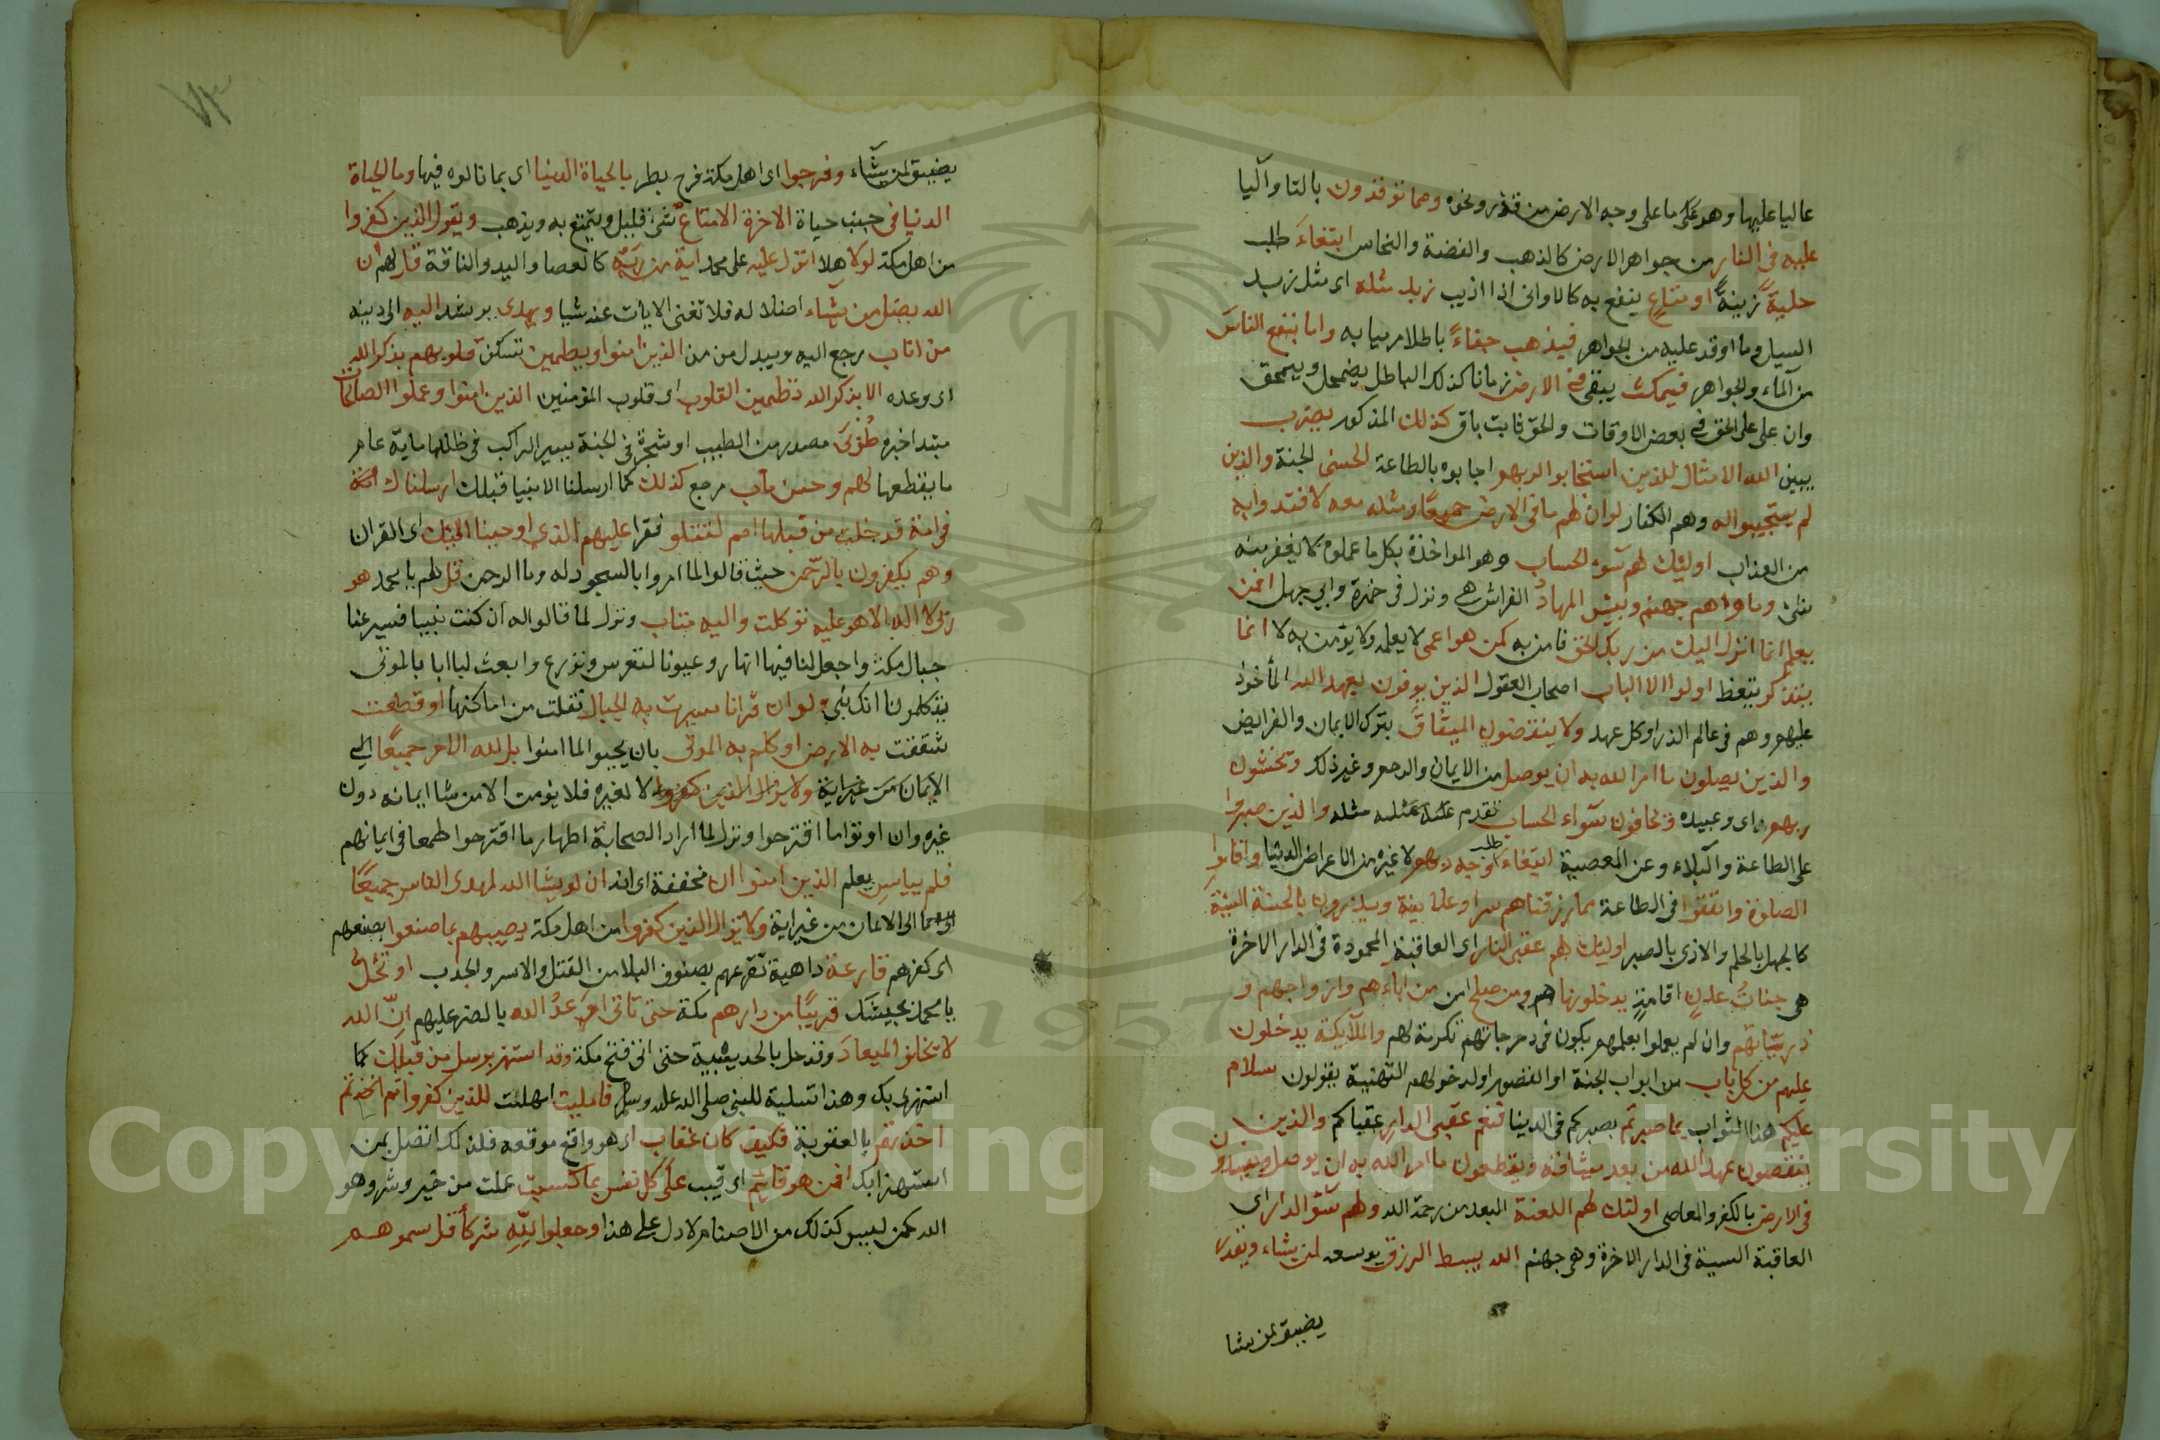 عاليا عليها وهو على ما على وجه الارض من قذر ونحوه ومما توقدون بالتا واليا
عليه فى النار من جواهر الارض كالذهب والفضة والنحاس ابتغاءَ طلب
حليةً زينةً او متاع ينتفع به كالاوانى اذا اذيب زبد مثله اى مثل زبد
السيل وما اوقد عليه من الجواهر فيذهب جفاءً باطلا مرميا به واما ينفع الناس
من الماء والجواهر فيمكث يبقى فى الارض زمانا كذلك الباطل يضمحل ويمحق
وان على على الحق فى بعض الاوقات والحق ثابت باق كذلك المذكور يضرب
يبين الله الامثال للذين استجابوا لربهم اجابوه بالطاعة الحسنى الجنة والذين
لم يستجيبوا له وهم الكفار لو ان لهم ما فى الارض جميعًا ومثله معه لافتدوا به
من العذاب اولئك لهم سوء الحساب وهو المواخذة بكل ما عملوه لا يغفر منه
شئ وماواهم جهنم وبئس المهاد الفراش هى ونزل فى حمزة وابى جهل افمن
يعلم انما انزل اليك من ربك الحق فامن به كمن هو اعمى لا يعلمه ولا يؤمن به لا انما
يتذكر يتعظ اولوا الالباب اصحاب العقول الذين يوفون بعهد الله الماخوذ
عليهم وهم فى عالم الذر او كل عهد ولا ينقضون الميثاقَ بترك الايمان والفرايض
والذين يصلون ما امر الله به ان يوصل من الايمان والرحم وغير ذلك ويخشون
ربهم اى وعيده ويخافون سواء الحساب تقدم مثله والذين صبروا
على الطاعة والبلاء وعن المعصية ابتغاءَ طلب وجه ربهم لا غيره من الاعراض الدنيا واقاموا
الصلوة وانفقوا فى الطاعة مما رزقناهم سرا وعلانية ويدرون بالحسنة السيئة
كالجهل بالحلم والاذى بالصبر اوليك لهم عقبى الدار اى العاقبة المحمودة فى الدار الاخرة
هى جناتُ عدنٍ اقامة يدخلونها هم ومن صلح امن من ابائهم وازواجهم و
ذرياتهم وان لم يعملوا بعملهم يكون فى درجاتهم تكرمة لهم والملايكة يدخلون
عليهم من كل باب من ابواب الجنة او القصور اول دخولهم التهنية يقولون سلام
عليكم هذا الثواب بما صبرتم بصبركم فى الدينا فنعم عقبى الدار عقباكم والذين
ينقضون عهد الله من بعد ميثاقه ويقطعون ما امر الله به ان يوصل ويفسدون
فى الارض بالكفر والمعاصى اولئك لهم اللعنة البعد من رحمة الله ولهم سوء الدار اى
العاقبة السية فى الدار الاخرة وهى جهنم الله يبسط الرزق يوسعه لمن يشاء ويقدر
يضيق لمن يشا
يضيق لمن يشاء وفرحوا اى اهل مكة فرح بطر بالحياة الدنيا اى بما نالوه فيها وما الحياة
الدنيا فى جنب حياة الاخرة الا متاع شئ قليل ويتمتع به ويذهب ويقول الذين كفروا
من اهل مكة لولا هلا انزل عليه على محمد اية من ربه كالعصا واليد والناقة قل لهم ان
الله يضل من يشاء اضلاله فلا تغنى الايات عنه شيا ويهدى يرشد اليه الى دينه
من اناب رجع اليه ويبدل من من الذين امنوا ويطمين تسكن قلوبهم بذكر الله
اى وعده الا بذكر الله تطمين القلوب اى قلوب المؤمنين الذين امنوا وعملوا الصالحات
مبتدا خبره طُوبَى مصدر من الطيب او شجرة فى الجنة يسير الراكب فى ظلها ماية عام
ما يقطعها لهم وحسن ماب مرجع كذلك كما ارسلنا الانبيا قبلك ارسلناك
فى امة قد خلت من قبلها امم لتتلو تقرا عليهم الذى اوحينا اليك اى القران
وهم يكفرون بالرحمن حيث قالوا لما امروا بالسجود له وما الرحمن قل لهم يا محمد هو
ربى لا اله الا هو عليه توكلت واليه متاب ونزل لما قالوا له ان كنت نبيا فسير عنا
جبال مكة واجعل لنا فيها انهار وعيونا لنغرس ونزرع وابعث لنا ابا بالموتى
يتكلمونا انك نبى ولو ان قرانا سيرت به الجبال نقلت من اماكنها او قطعت
شققت به الارض او كلم به الموتى بان يحيوا لما امنوا بل لله الامر جميعًا
لا لغيره فلا يومن الا من شا ايمانه دون
غيره وان اوتوا ما اقترحوا ونزل لما اراد الصحابة اظهار ما اقترحوا طمعا فى ايمانهم
فلم يياس يعلم الذين امنوا ان مخففة اى انه ان لو يشا الله لهدى الناس جميعًا
الى الايمان من غير اية ولا يزال الذين كفروا من اهل مكة يصيبهم بما صنعوا بصنعهم
اى كفرهم قارعة داهية تقرعهم بصنوف البلا من القتل والاسر والجدب او تحلُّ
يا محمد بجيشك قريبًا من دارهم مكة حتى ياتى وعدُ الله بالنصر عليهم انّ الله
لا يخلف الميعادَ وقد حل بالحديبية حتى اتى فتح مكة ولقد استهزى برسل من قبلك كما
استهزى بك وهذا تسلية للنبى صلى الله عليه وسلم فامليت امهلت للذين كفروا ثم اخذتهم
بالعقوبة فكيف كان عقاب اى هو واقع موقعه فلذلك افضل بمن
استهزا بك افمن هو قايم رقيب على كل نفس بما كسبت عملت من خير وشر وهو
الله كمن ليس كذلك من الاصنام لا دل على هذا وجعلوا لله شركا قل سموهم
Copyright © King Saud University
1957